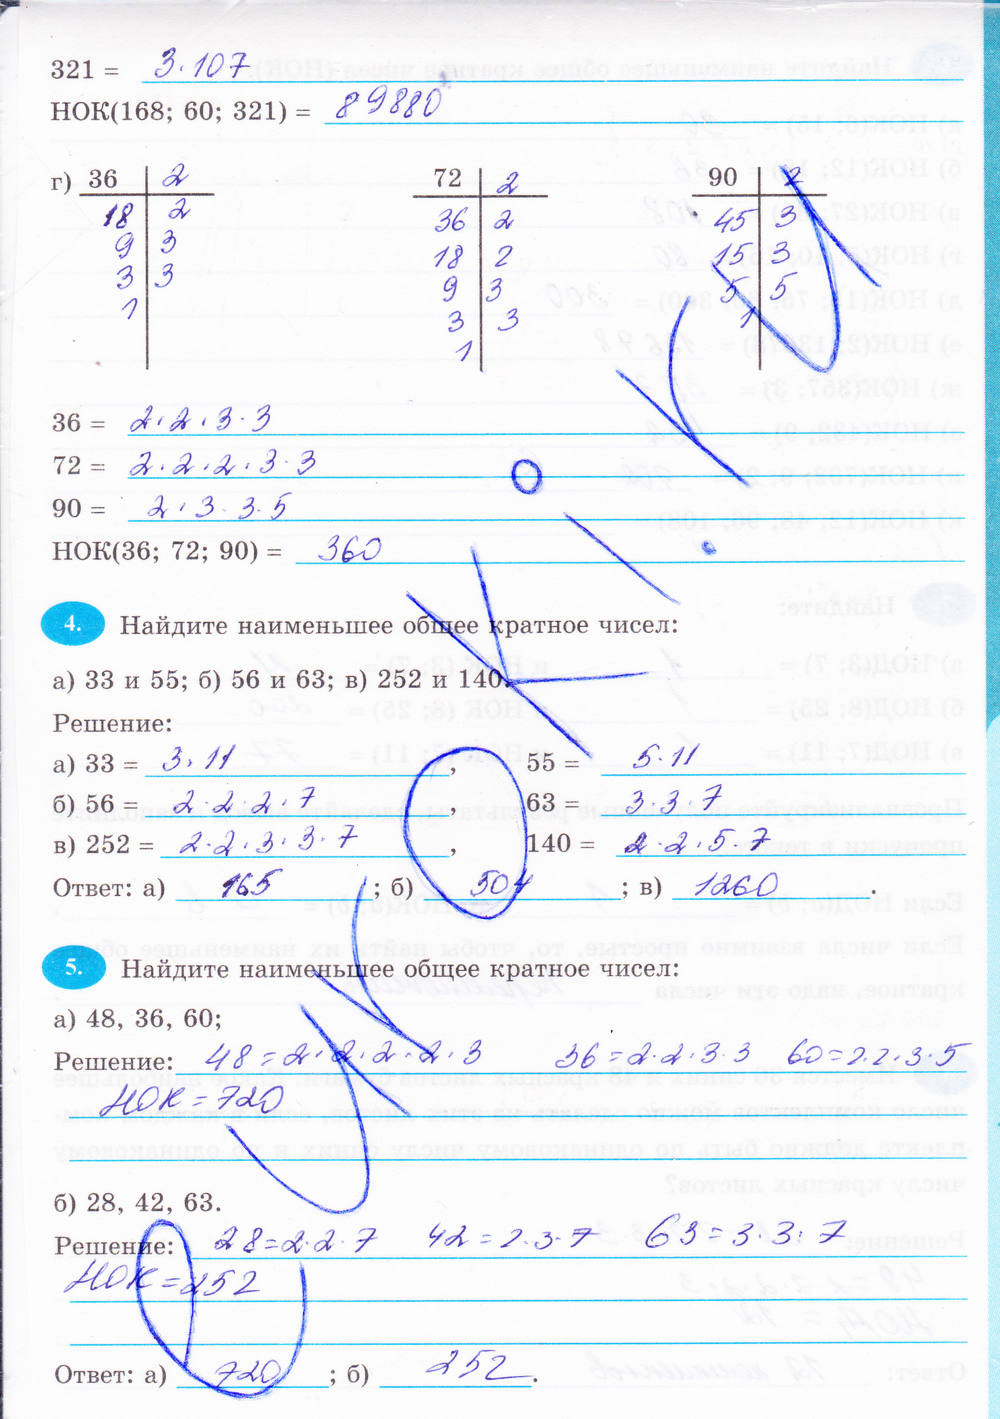 321 = 3·107
НОК(168; 60; 321) = 89880
г) 36 2 72 2 90 2
18 2 36 2 45 3
9 3 18 2 15 3
3 3 9 3 5 5
1 3 3 1
1
36 = 2·2·3·3
72 = 2·2·2·3·3
90 = 2·3·3·5
НОК(36; 72; 90) = 360
4. Найдите наименьшее общее кратное чисел:
а) 33 и 55; б) 56 и 63; в) 252 и 140.
Решение:
а) 33 = 3·11, 55 = 5·11
б) 56 = 2·2·2·7 63 = 3·3·7
в) 252 = 2·2·3·3·7, 140 = 2·2·5·7
Ответ: а) 165; б) 504; в) 1260.
5. Найдите наименьшее общее кратное чисел:
а) 48, 36, 60;
Решение: 48=2·2·2·2·3 36=2·2·3·3 60=2·2·3·5
НОК=720
б) 28, 42, 63.
Решение: 28=2·2·7 42=2·3·7 63=3·3·7
НОК=252
Ответ: а) 720; б) 252.